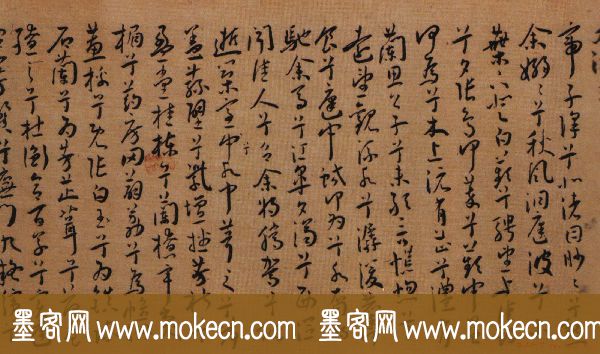 帝子降兮北渚目眇眇兮
余嫋嫋兮秋風洞庭波兮
葉下登白薠兮騁望與佳
兮夕張鳥何萃兮蘋中
何為兮木上沅有芷兮澧
蘭思公子兮未敢言慌惚
遠望觀流水兮潺湲
食兮庭中蛟何為兮水裔
馳余馬兮江皋夕濟兮西
聞佳人兮召余將騰駕兮
逝築室兮水中葺之
蓋蓀壁兮紫壇播芳椒
盈堂桂棟兮蘭橑辛
楣兮藥房罔薜荔兮為帷
蕙櫋兮既張白玉兮為鎮
石蘭兮為芳芷葺兮
繚之兮杜衡合百草兮實
芳馨兮廡門九嶷繽
墨客网 www.mokecn.com 墨客网 www.mokecn.com